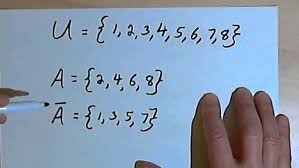 U = {1,2,3,4,5,6,7,8}
A = {2,4,6,8}
A̅ = {1,3,5,7}